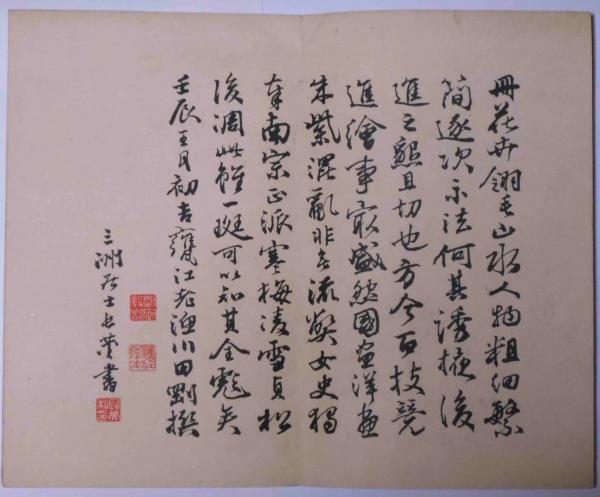 冊花卉翎毛山水人物粗細繁
簡逐次示法何其誘掖後
進之懇且切也方今百技競
進繪事寂盛然國畫洋畫
朱紫混亂非無流弊女史獨
奉南宗正派寒梅凌雪貞松
後凋此雖一斑可以知其全彪矣
壬辰王月初吉甕江老漁川田剛撰
三洲居士長炗書